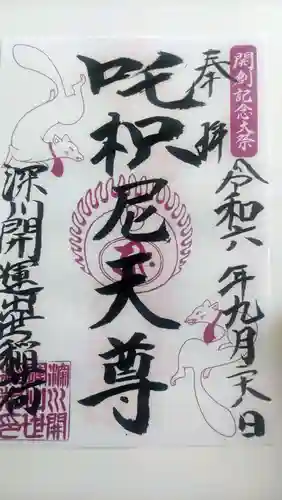 開創記念大祭
奉拝
令和六年九月二六日
吒枳尼天尊
深川開運出世稲荷